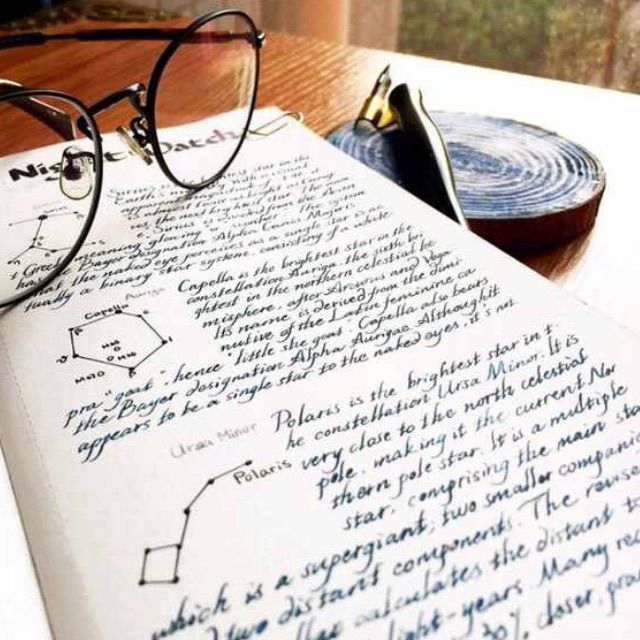 Night Watch
Sirius is the brightest star in the
Earth
Sirius
meaning glowing or
t Greek Bayer designation Alpha Canis Majoris
has the naked eye perceives as a single star is
tually a binary star system, consisting of a white
Auriga
Capella
M38
M36
M37
Capella is the brightest star in the
constellation Auriga, the sixth bri
ghtest in the northern celestial he
misphere, after Arcturus and Vega
Its name is derived from the dimi
nutive of the Latin feminine ca
pra "goat", hence "little she goat". Capella also bears
the Bayer designation Alpha Aurigae Although it
appears to be a single star to the naked eyes, it's not
Ursa Minor
Polaris
Polaris is the brightest star in t
he constellation Ursa Minor. It is
very close to the north celestial
pole, making it the current Nor
thern pole star. It is a multiple
star, comprising the main star
which is a supergiant; two smaller compani
two distant components. The revise
calculates the distant t
light-years Many rec
30% closer,